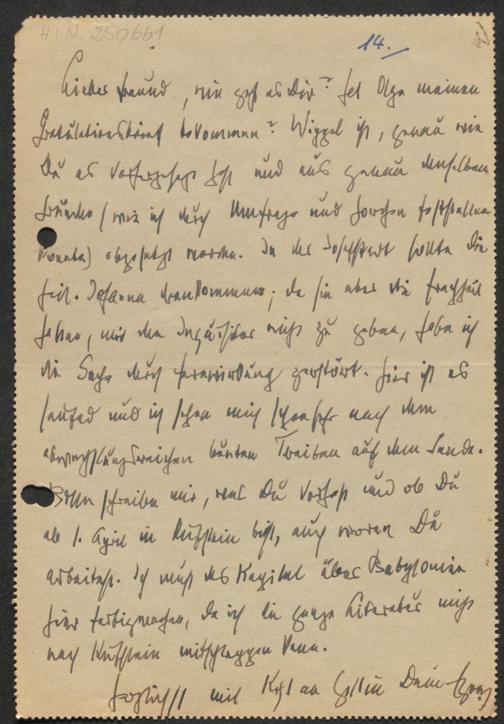 H.I.N. 250661
14.
Lieber Freund, wie geht es Dir? Hat Olga meinen
Gratulationsbrief bekommen? Wiggel ist, genau wie
Du es vorhergesagt hast und aus genau denselben
Gründen (wie ich durch Umfrage und Horchen feststellen
konnte) abgesetzt worden. In der Josefstadt sollte die
Heil. Johanna drankommen; da sie aber die Frechheit
hatten, mir den Inquisitor nicht zu geben, habe ich
die Sache durch zerstört. Hier ist es
und ich sehne mich schon sehr nach dem
abwechslungsreichen bunten Treiben auf dem Lande.
Bitte schreibe mir, was Du vorhast und ob Du
ab 1. April in Kufstein bist, auch woran Du
arbeitest. Ich muß das Kapitel über Babylonien
hier fertigmachen, da ich die ganze Literatur nicht
nach Kufstein mitschleppen kann.
Herzlichst mit Kuß an Gattin Dein